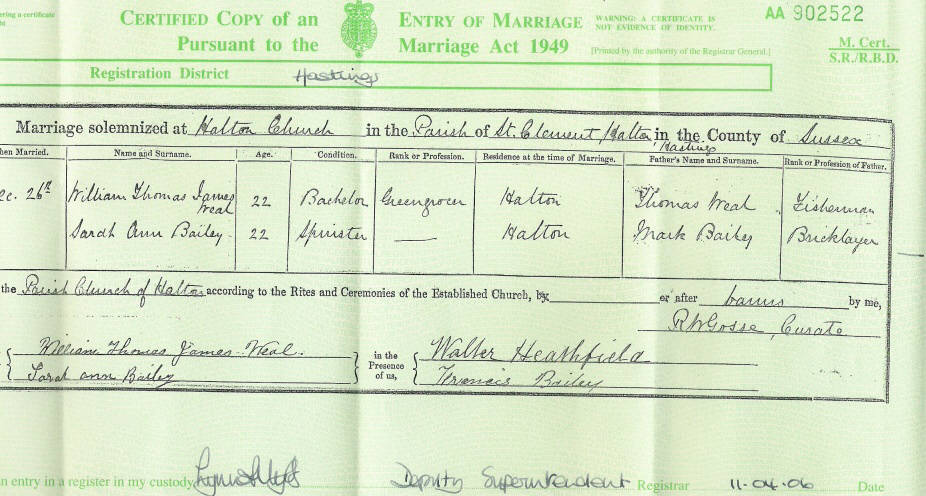 ering a certificate
CERTIFIED COPY of an ENTRY OF MARRIAGE
Pursuant to the Marriage Act 1949
WARNING: A CERTIFICATE IS
NOT EVIDENCE OF IDENTITY.
[Printed by the authority of the Registrar General.]
AA 902522
M. Cert.
S.R./R.B.D.
Registration District Hastings
Marriage solemnized at Halton Church in the Parish of St. Clement, Halton in the County of Sussex
Hastings
hen Married. Name and Surname. Age. Condition. Rank or Profession. Residence at the time of Marriage. Father's Name and Surname. Rank or Profession of Father.
ec. 26th William Thomas James Weal 22 Bachelor Greengrocer Halton Thomas Weal Fisherman
Sarah Ann Bailey 22 Spinster — Halton Mark Bailey Bricklayer
the Parish Church of Halton according to the Rites and Ceremonies of the Established Church, by or after banns by me,
R W Gosse, Curate
William Thomas James Weal
Sarah Ann Bailey
in the
Presence
of us,
Walter Heathfield
Francis Bailey
an entry in a register in my custody Deputy Superintendent Registrar 11-04-06 Date